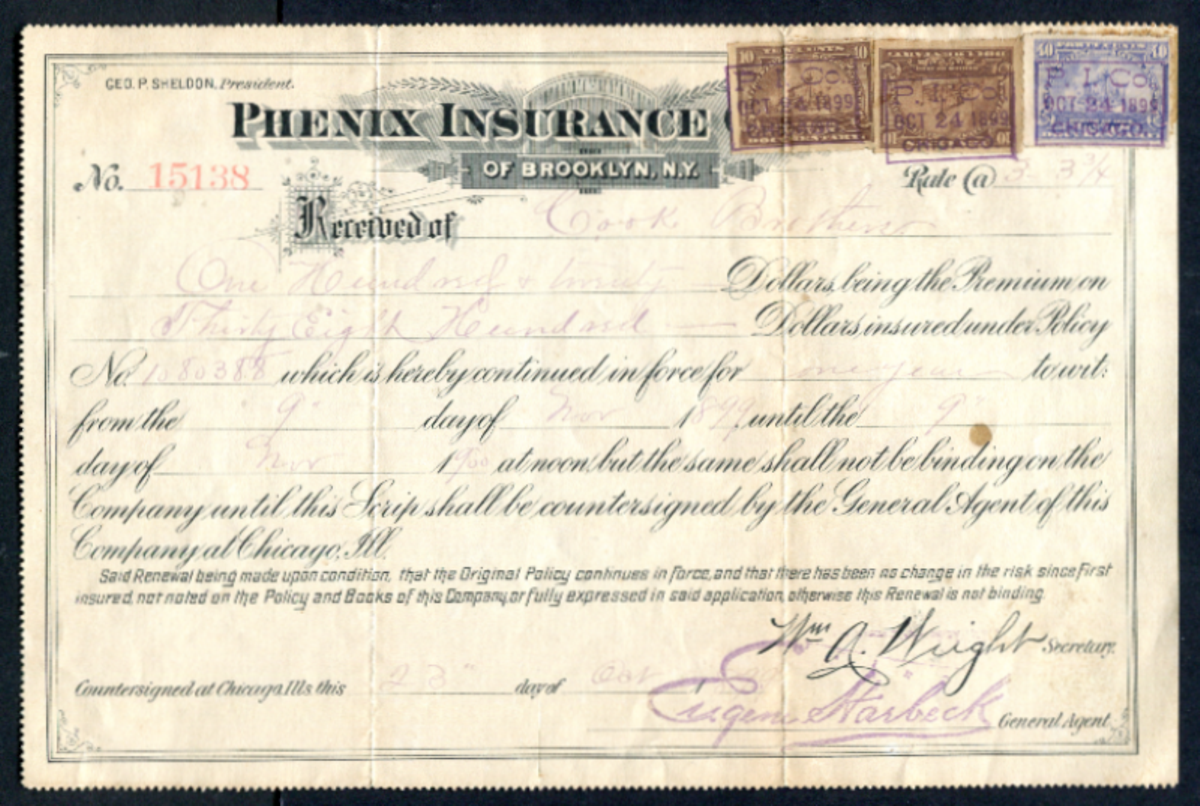 GEO. P. SHELDON, President.
PHENIX INSURANCE
OF BROOKLYN, N.Y.
10 TEN CENTS 10
P. I. Co.
OCT 24 1899
CHICAGO.
P. I. Co.
OCT 24 1899
CHICAGO
40 40
P. I. Co.
OCT 24 1899
CHICAGO.
No. 15138
Rate @ 3 3¾
Received of Cook Brothers
One Hundred & twenty Dollars, being the Premium on
Thirty Eight Hundred — Dollars, insured under Policy
No. 1080388 which is hereby continued in force for one year to wit:
from the 9" day of Nov 1899, until the 9"
day of Nov 1900 at noon, but the same shall not be binding on the
Company until this Scrip shall be countersigned by the General Agent of this
Company at Chicago, Ill.
Said Renewal being made upon condition, that the Original Policy continues in force, and that there has been no change in the risk since first
insured, not noted on the Policy and Books of this Company, or fully expressed in said application, otherwise this Renewal is not binding.
Wm A. Wright Secretary.
Countersigned at Chicago, Ills. this 23" day of Oct
Eugene Harbeck General Agent.